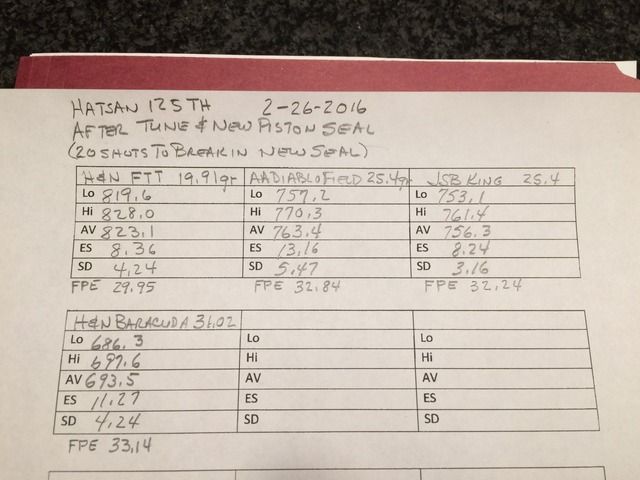 HATSAN 125TH 2-26-2016
AFTER TUNE & NEW PISTON SEAL
(20 SHOTS TO BREAK IN NEW SEAL)
H&N FTT 19.91gr AADIABLOFIELD 25.4gr JSB KING 25.4
Lo 819.6 Lo 757.2 Lo 753.1
Hi 828.0 Hi 770.3 Hi 761.4
AV 823.1 AV 763.4 AV 756.3
ES 8.36 ES 13.16 ES 8.24
SD 4.24 SD 5.47 SD 3.16
FPE 29.95 FPE 32.84 FPE 32.24
H&N BARACUDA 31.02
Lo 686.3 Lo Lo
Hi 697.6 Hi Hi
AV 693.5 AV AV
ES 11.27 ES ES
SD 4.24 SD SD
FPE 33.14